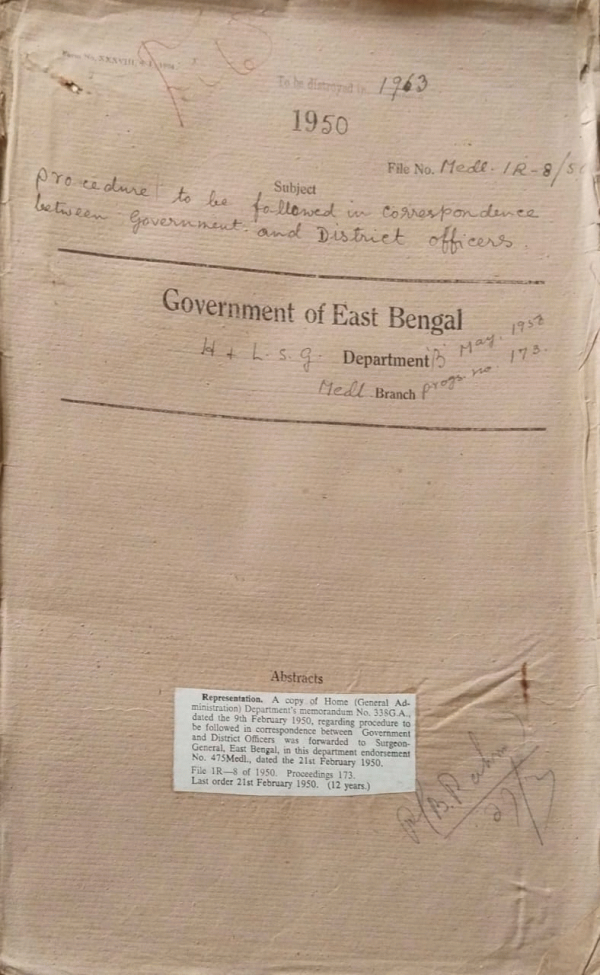 To be destroyed in 1963
1950
File No. Medl. 1R-8/5
Subject
procedure to be followed in correspondence
between Government and District officers.
Government of East Bengal
H + L. S. G. Department B May. 1953
Medl. Branch progs. no 173.
Abstracts
Representation. A copy of Home (General Ad-
ministration) Department's memorandum No. 338G.A.,
dated the 9th February 1950, regarding procedure to
be followed in correspondence between Government
and District Officers was forwarded to Surgeon-
General, East Bengal, in this department endorsement
No. 475Medl., dated the 21st February 1950.
File 1R—8 of 1950. Proceedings 173.
Last order 21st February 1950. (12 years.)